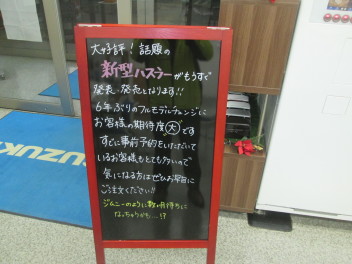 大好評！話題の
新型ハスラーがもうすぐ
発表・発売となります!!
6年ぶりのフルモデルチェンジに
お客様の期待度大です
すでに事前予約をいただいて
いるお客様もとても多いので
気になる方はぜひお早目に
ご注文ください!!
ジムニーのように数ヶ月待ちに
なっちゃうかも…!?
SUZUKI